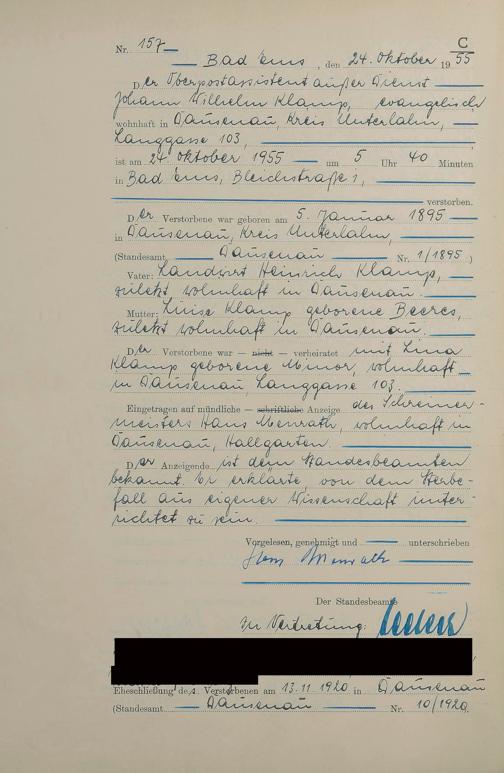 Nr. 157
C
Bad Ems, den 24. Oktober 1955
Der Oberpostassistent außer Dienst
Johann Wilhelm Klamp, evangelisch
wohnhaft in Dausenau, Kreis Unterlahn,
Langgasse 103,
ist am 24. Oktober 1955 um 5 Uhr 40 Minuten
in Bad Ems, Bleichstraße 1,
verstorben.
Der Verstorbene war geboren am 5. Januar 1895
in Dausenau, Kreis Unterlahn,
(Standesamt Dausenau Nr. 1/1895)
Vater: Landwirt Heinrich Klamp,
zuletzt wohnhaft in Dausenau.
Mutter: Luise Klamp geborene Beeres,
zuletzt wohnhaft in Dausenau.
Der Verstorbene war — nicht — verheiratet mit Lina
Klamp geborene Minor, wohnhaft
in Dausenau, Langgasse 103.
Eingetragen auf mündliche — schriftliche Anzeige des Schreiner-
meisters Hans Menrath, wohnhaft in
Dausenau, Hallgarten.
Der Anzeigende ist dem Standesbeamten
bekannt. Er erklärte, von dem Sterbe-
fall aus eigener Wissenschaft unter-
richtet zu sein.
Vorgelesen, genehmigt und unterschrieben
Hans Menrath
Der Standesbeamte
In Vertretung:
Eheschließung des Verstorbenen am 13.11.1920 in Dausenau
(Standesamt Dausenau Nr. 10/1920)